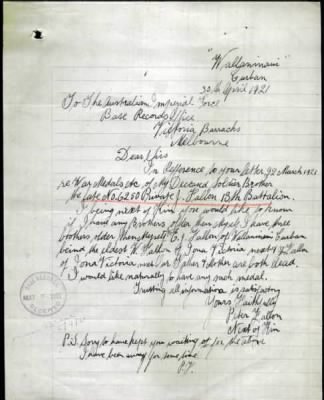 "Wallaminani"
Curban
30th April 1921
To The Australian Imperial Force
Base Records Office
Victoria Barracks
Melbourne
Dear Sirs
In Reference to your letter 22 March 1921
re War Medals etc of My Deceased Soldier Brother
the late No. 6250 Private J. Fallon 13th Battalion.
I being next of Kin you would like to know
if I have any Brothers older than myself. I have three
brothers older than myself E. J. Fallon of Curban
being the eldest W. Fallon of Iona Victoria next
Fallon
of Iona Victoria next our Father & Mother are both dead.
I would like naturally to have any such medal.
Trusting all information is satisfactory
Yours Faithfully
Peter Fallon
Next of Kin
P.S. Sorry to have kept you waiting of for the above
I have been away for some time
P.F.